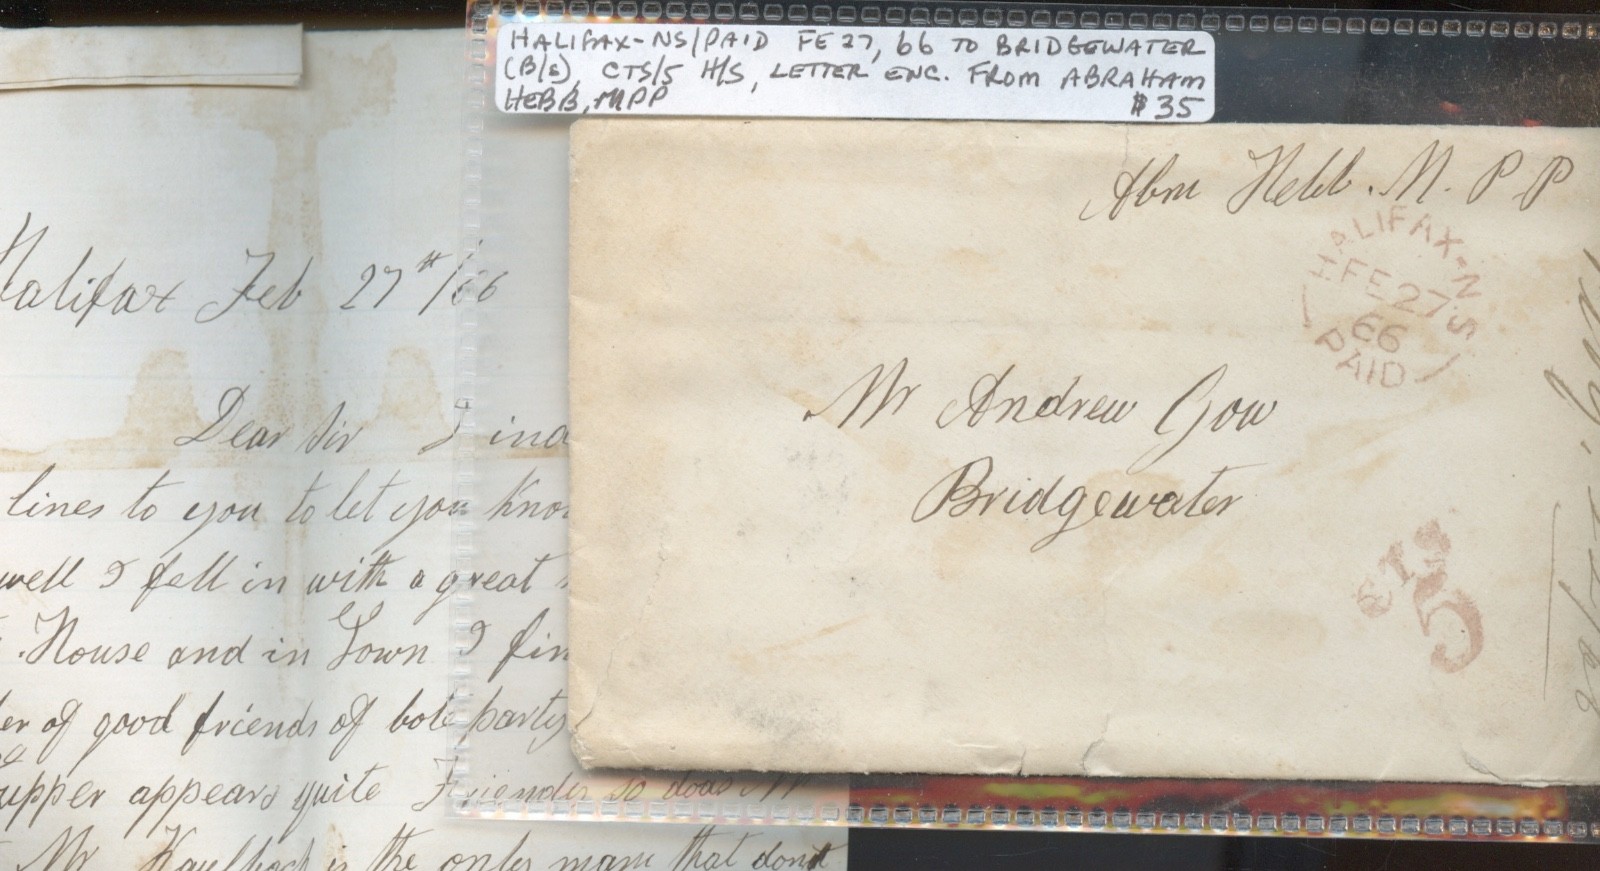 HALIFAX-NS/PAID FE 27, 66 TO BRIDGEWATER
(B/S), CTS/5 H/S, LETTER ENC. FROM ABRAHAM
HEBB, MPP $35
Abm Hebb. M. P P
HALIFAX-N.S
H
FE 27
66
PAID
Mr Andrew Gow
Bridgewater
CTS
5
Halifax Feb 27th/66
Dear Sir I
lines to you to let you
well I fell in with a great
House and in Town I
of good friends of bote party
upper appears quite so does
Mr Kaulback is the only man that dont